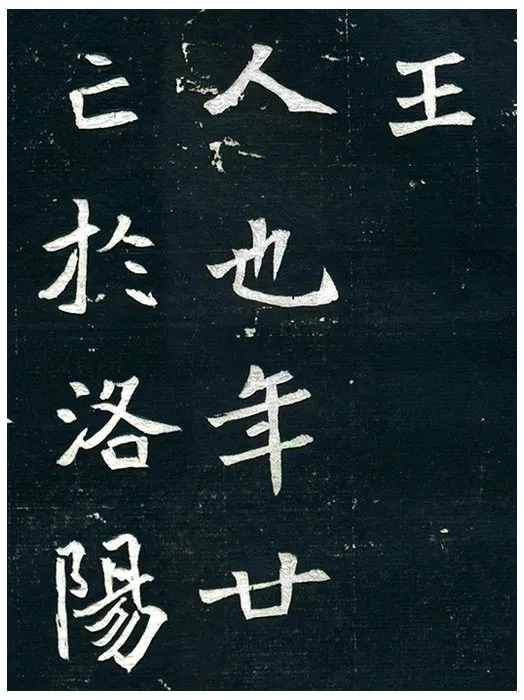 王
人也年廿
亡於洛陽